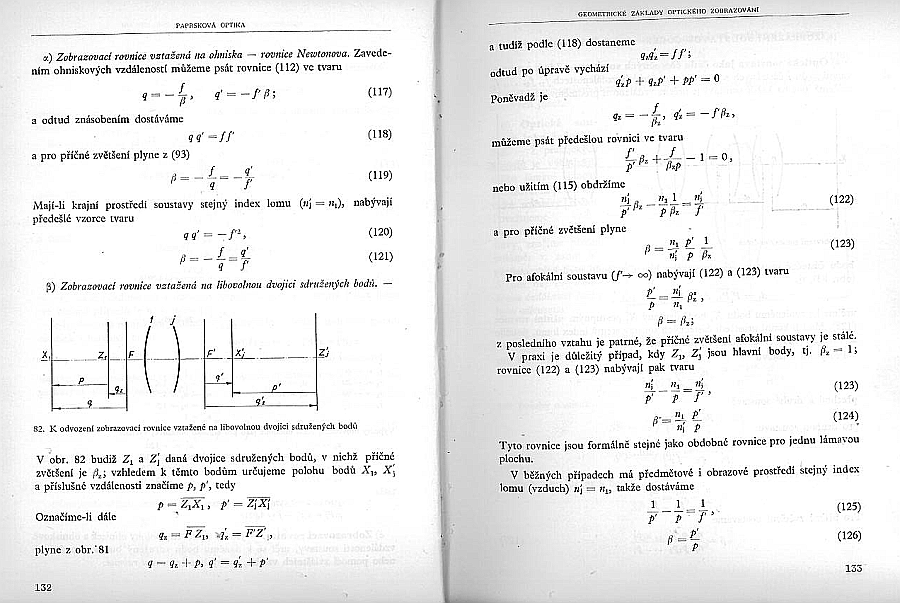 PAPRSKOVÁ OPTIKA
α) Zobrazovací rovnice vztažená na ohniska — rovnice Newtonova. Zavede-
ním ohniskových vzdáleností můžeme psát rovnice (112) ve tvaru
q = − f/β , q′ = − f′ β ; (117)
a odtud znásobením dostáváme
q q′ = f f′ (118)
a pro příčné zvětšení plyne z (93)
β = − f/q = − q′/f′ (119)
Mají-li krajní prostředí soustavy stejný index lomu (n′j = n1), nabývají
předešlé vzorce tvaru
q q′ = − f′², (120)
β = − f/q = q′/f′ (121)
β) Zobrazovací rovnice vztažená na libovolnou dvojici sdružených bodů. —
1 j
X1 Z1 F F′ X′j Z′j
p qz q′ p′
q q′z
82. K odvození zobrazovací rovnice vztažené na libovolnou dvojici sdružených bodů
V obr. 82 budiž Z1 a Z′j daná dvojice sdružených bodů, v nichž příčné
zvětšení je βz; vzhledem k těmto bodům určujeme polohu bodů X1, X′j
a příslušné vzdálenosti značíme p, p′, tedy
p = Z1X1 , p′ = Z′jX′j
Označíme-li dále
qz = F Z1, q′z = F′Z′,
plyne z obr. 81
q = qz + p, q′ = q′z + p′
132
GEOMETRICKÉ ZÁKLADY OPTICKÉHO ZOBRAZOVÁNÍ
a tudíž podle (118) dostaneme
qzq′z = f f′ ;
odtud po úpravě vychází
q′zp + qzp′ + pp′ = 0
Poněvadž je
qz = − f/βz , q′z = − f′βz,
můžeme psát předešlou rovnici ve tvaru
f′/p′ βz + f/βzp − 1 = 0,
nebo užitím (115) obdržíme
n′j/p′ βz − n1/p 1/βz = n′j/f′ (122)
a pro příčné zvětšení plyne
β = n1/n′j p′/p 1/βz (123)
Pro afokální soustavu (f′→ ∞) nabývají (122) a (123) tvaru
p′/p = n′j/n1 β²z ,
β = βz;
z posledního vztahu je patrné, že příčné zvětšení afokální soustavy je stálé.
V praxi je důležitý případ, kdy Z1, Z′j jsou hlavní body, tj. βz = 1;
rovnice (122) a (123) nabývají pak tvaru
n′j/p′ − n1/p = n′j/f′ , (123)
β = n1/n′j p′/p (124)
Tyto rovnice jsou formálně stejné jako obdobné rovnice pro jednu lámavou
plochu.
V běžných případech má předmětové i obrazové prostředí stejný index
lomu (vzduch) n′j = n1, takže dostáváme
1/p′ − 1/p = 1/f′ , (125)
β = p′/p (126)
133